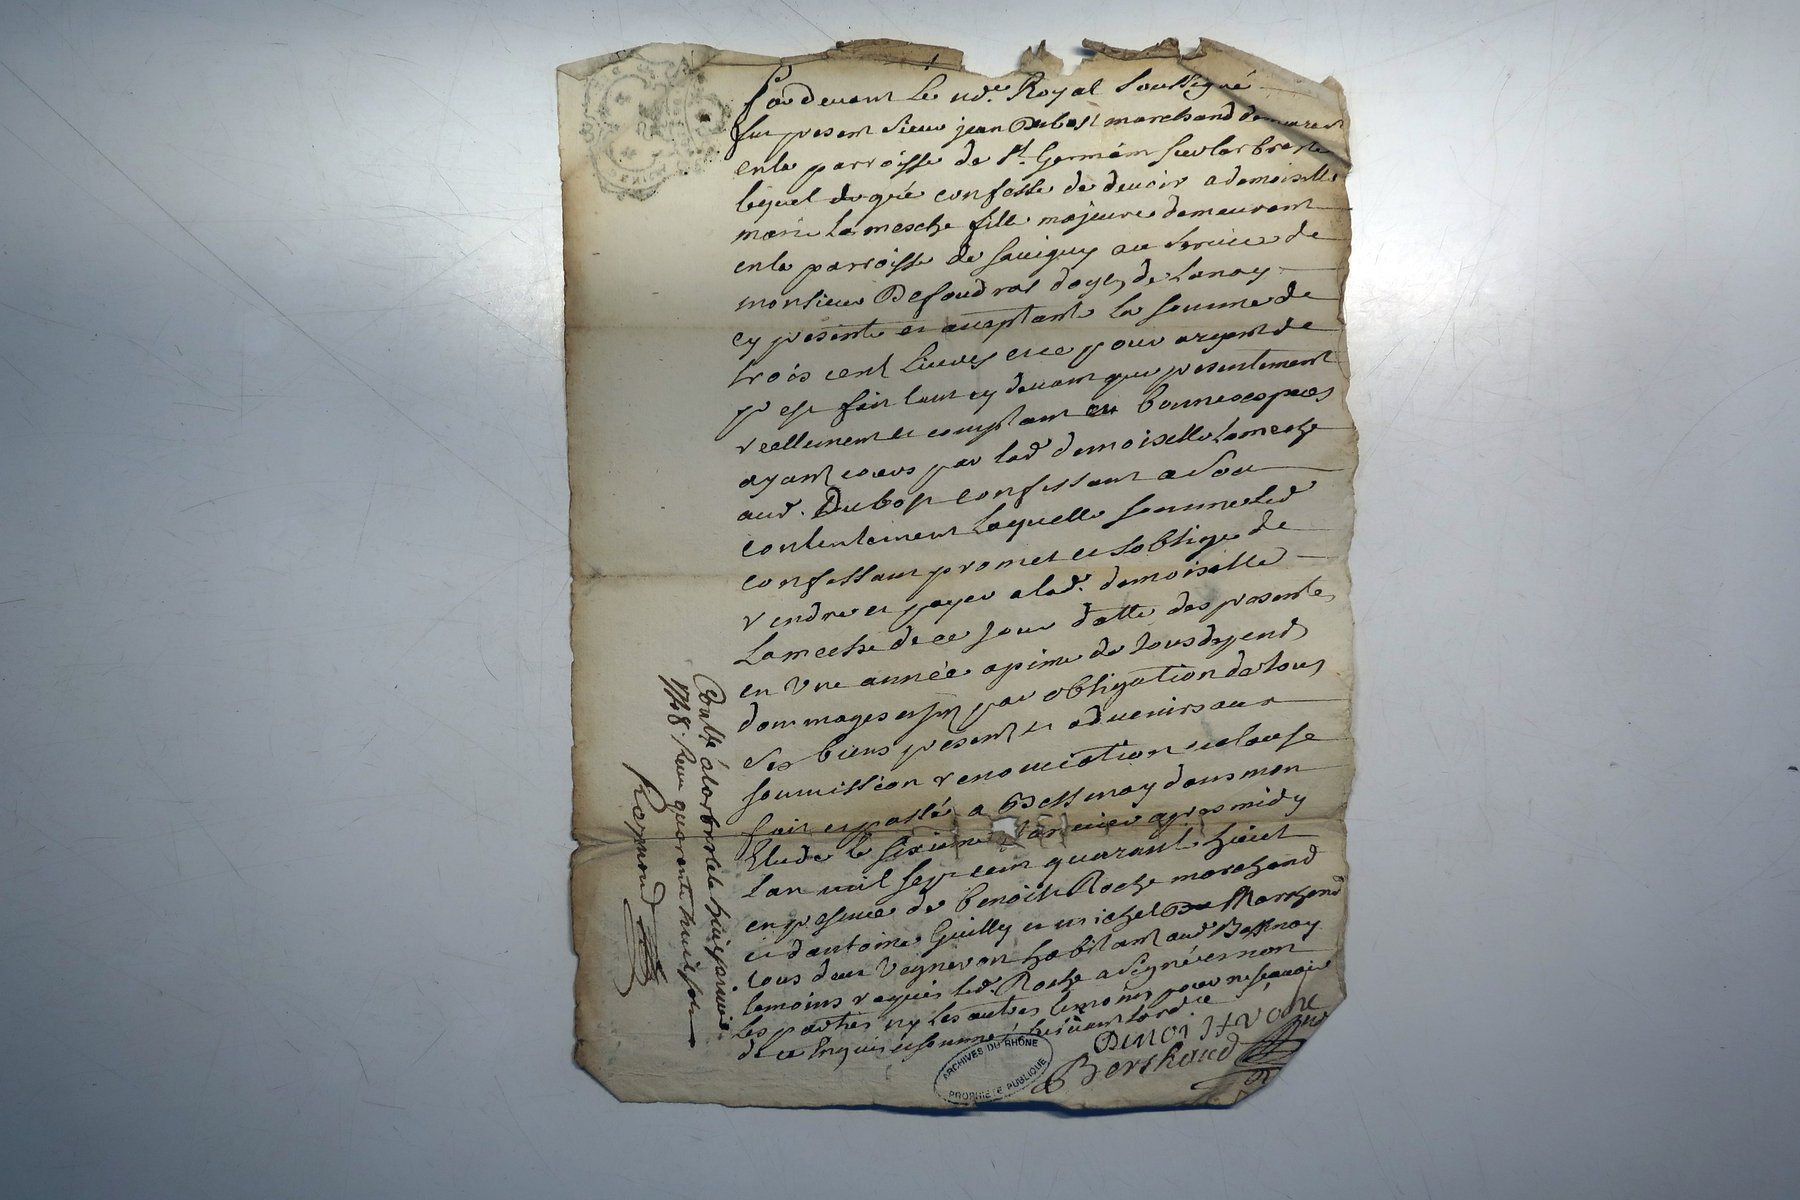 Pardevant le nore. Royal soussigné
fut present sieur jean Dubost marchand demeurant
en la parroisse de st. Germain sur larbresle
lequel de gré confesse de devoir a demoiselle
marie lamesche fille majeure demeurant
en la parroisse de savigny au service de
monsieur Defoudras doyen de
cy presente et acceptante la somme de
trois cent livres et ce pour argent de
pst fait tout cy devant que presentement
reellement et comptant en bonnes especes
ayant cours par lad. demoiselle Lamesche
aud. Dubost confessant a son
contentement laquelle somme led.
confessant promet et soblige de
rendre et payer a lad. demoiselle
Lamesche de ce jour datte des presentes
en une année a peine de tous depends
dommages par obligation de tous
ses biens presents et advenirs aux
soumission renonciation et clause
fait et passé a Bessenay dans mon
Etude le sixieme janvier apres midy
lan mil sept cent quarante huict
en presence de benoist Roche marchand
et dantoine Guilly et michel Marchand
tous deux vigneron habitant aud. Bessenay
temoins requis led. Roche a signé et non
les parties ny les autres temoins pour ne scavoir
de ce enquis et sommé suivant lord.ce
Benoit Roche
Berthaud
Contlé a larbresle le huit janvier
1748. Reçu quarante huit sols
Raymond
ARCHIVES DU RHÔNE
PROPRIÉTÉ PUBLIQUE